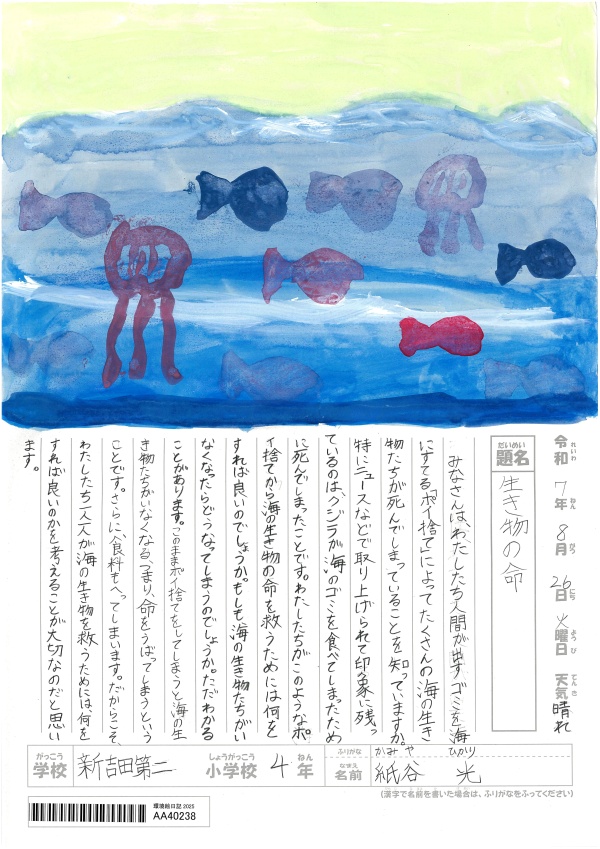 令和7年8月26日火曜日 天気晴れ
れいわ ねん がつ にち ようび てんき
だいめい
題名 生き物の命
みなさんは、わたしたち人間が出すゴミを海
にすてる「ポイ捨て」によってたくさんの海の生き
物たちが死んでしまっていることを知っていますか。
特にニュースなどで取り上げられて印象に残っ
ているのは、クジラが海のゴミを食べてしまったため
に死んでしまったことです。わたしたちがこのようなポ
イ捨てから海の生き物の命を救うためには何を
すれば良いのでしょうか。もしも海の生き物たちがい
なくなったらどうなってしまうのでしょうか。ただわかる
ことがあります。このままポイ捨てをしてしまうと海の生
き物たちがいなくなる、つまり、命をうばってしまうという
ことです。さらに食料もへってしまいます。だからこそ、
わたしたち一人一人が海の生き物を救うためには、何を
すれば良いのかを考えることが大切なのだと思い
ます。
がっこう しょうがっこう ねん ふりがな かみや ひかり
学校 新吉田第二 小学校 4年 なまえ 名前 紙谷 光
(漢字で名前を書いた場合は、ふりがなをふってください)
環境絵日記 2025
AA40238